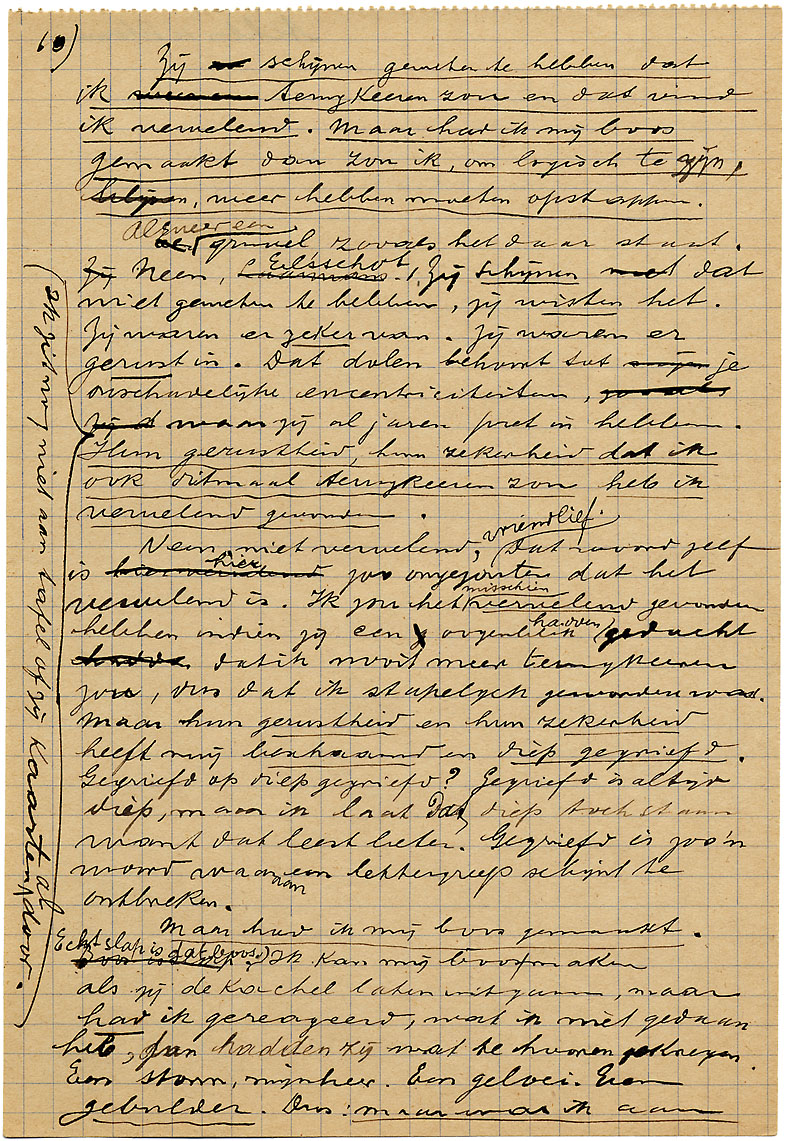 10)
Zij schijnen geweten te hebben dat
ik terugkeeren zou en dat vind
ik vervelend. Maar had ik mij boos
gemaakt dan zou ik, om logisch te zijn,
weer hebben moeten opstappen.
Alweer een
gruwel zooals het daar staat.
Neen, Elsschot, zij schijnen dat
niet geweten te hebben, zij wisten het.
Zij waren er zeker van. Zij waren er
gerust in. Dat dolen behoort tot je
onschadelijke excentriciteiten,
waar zij al jaren pret in hebben.
Hun gerustheid, hun zekerheid dat ik
ook ditmaal terugkeeren zou heb ik
vervelend gevonden.
Neen, niet vervelend, vriendlief. Dat woord zelf
is hier zoo ongezouten dat het
vervelend is. Ik zou het misschien vervelend gevonden
hebben indien zij een oogenblik hadden gedacht
dat ik nooit meer terugkeeren
zou, dus dat ik stapelgek geworden was.
Maar hun gerustheid en hun zekerheid
heeft mij beschaamd en diep gegriefd.
Gegriefd op diep gegriefd? Gegriefd is altijd
diep, maar ik laat Dat diep toch staan
want dat leest beter. Gegriefd is zoo'n
woord waaraan een lettergreep schijnt te
ontbreken.
Maar had ik mij boos gemaakt.
Echt slap is dat boos. Ik kan mij boos maken
als zij de kachel laten uitgaan, maar
had ik gereageerd, wat ik niet gedaan
heb, dan hadden zij wat te hooren gekregen.
Een storm, mijnheer. Een geloei. Een
gebulder. Dus: maar was ik aan
Ik zit nog niet aan tafel of zij kaarten al door.